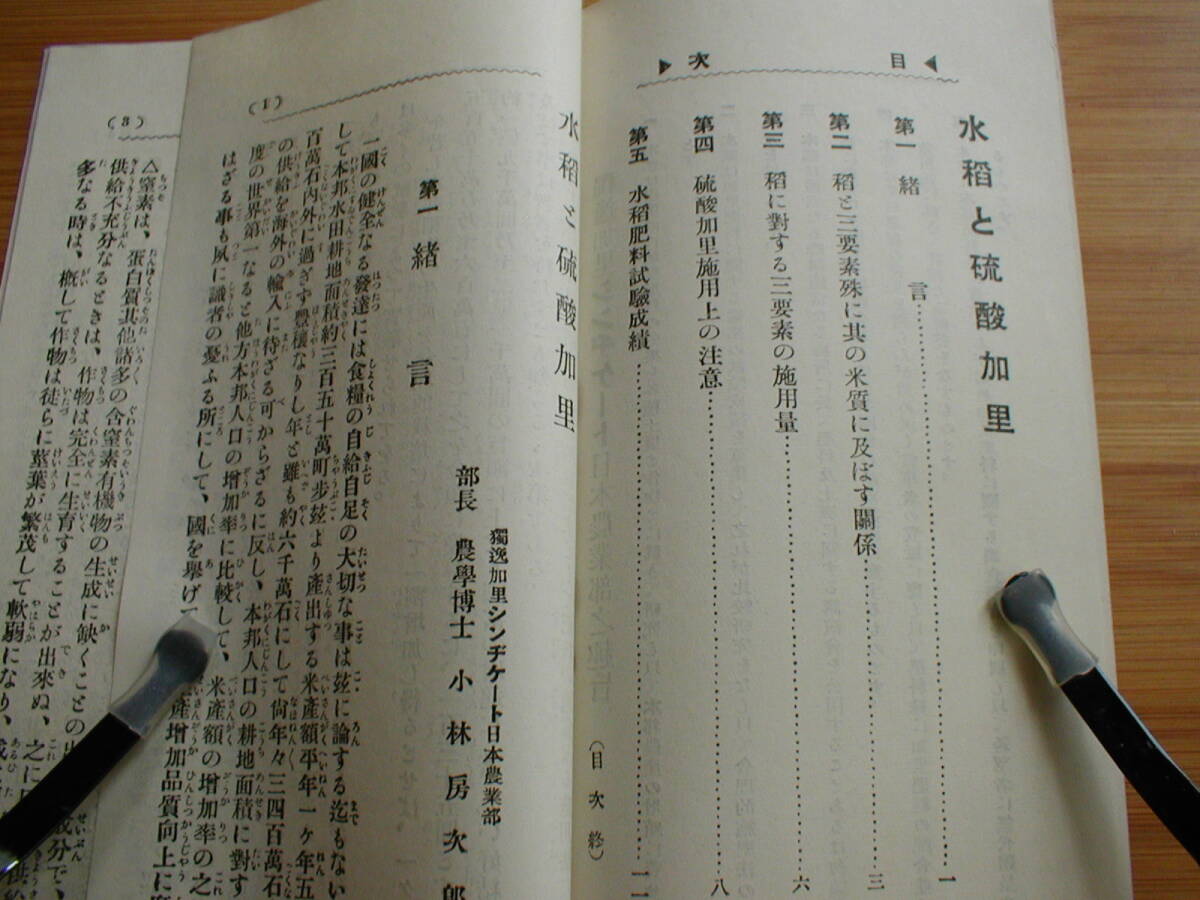 目次
水稻と硫酸加里
第一 緒言…………一
第二 稻と三要素殊に其の米質に及ぼす關係…………三
第三 稻に對する三要素の施用量…………六
第四 硫酸加里施用上の注意…………八
第五 水稻肥料試驗成績…………一一
(目次終)
水稻と硫酸加里
獨逸加里シンヂケート日本農業部
部長 農學博士 小林房次郎
第一 緒言
一國の健全なる發達には食糧の自給自足の大切な事は玆に論する迄もない
して本邦水田耕地面積約三百五十萬町步玆より產出する米產額平年一ヶ年五
百萬石內外に過ぎず豐穰なりし年と雖も約六千萬石にして尙年々三四百萬石
の供給を海外の輸入に待ざる可からざるに反し、本邦人口の耕地面積に對す
度の世界第一なると他方本邦人口の增加率に比較して、米產額の增加率の之
はざる事も夙に識者の憂ふる所にして、國を擧げて
產增加品質向上に
(1)
(3)
△窒素は、蛋白質其他諸多の含窒素有機物の生成に缺くことの出
供給不充分なるときは、作物は完全に生育することが出來ぬ、之に
多なる時は、槪して作物は徒らに莖葉が繁茂して軟弱になり、